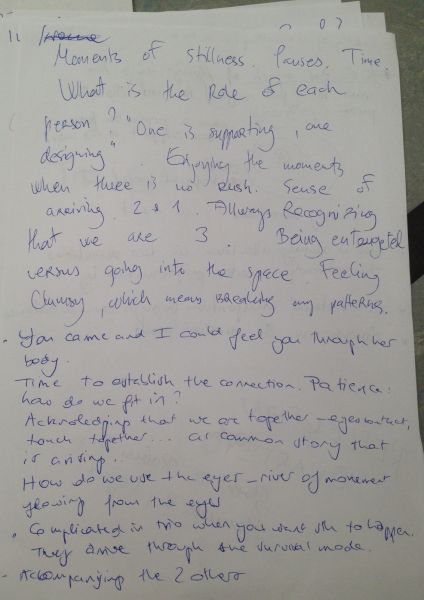 Moments of stillness. Pauses. Time.
What is the Role of each
person? "One is supporting, one
designing". Enjoying the moments
when there is no rush. Sense of
arriving. 2 + 1. Allways Recognising
that we are 3. Being entangeled
versus going into the space. Feeling
Clumsy, which means breaking my patterns.
- You came and I could feel you through her
body.
Time to establish the connection. Patience:
how do we fit in?
Acknoledging that we are together - eyescontact,
touch together... a common story that
is arising..
How do we use the eyes - river of movement
flowing from the eyes
• Complicated in trio when you want sth to happen.
They arrive through the survival mode.
- Accompanying the 2 others